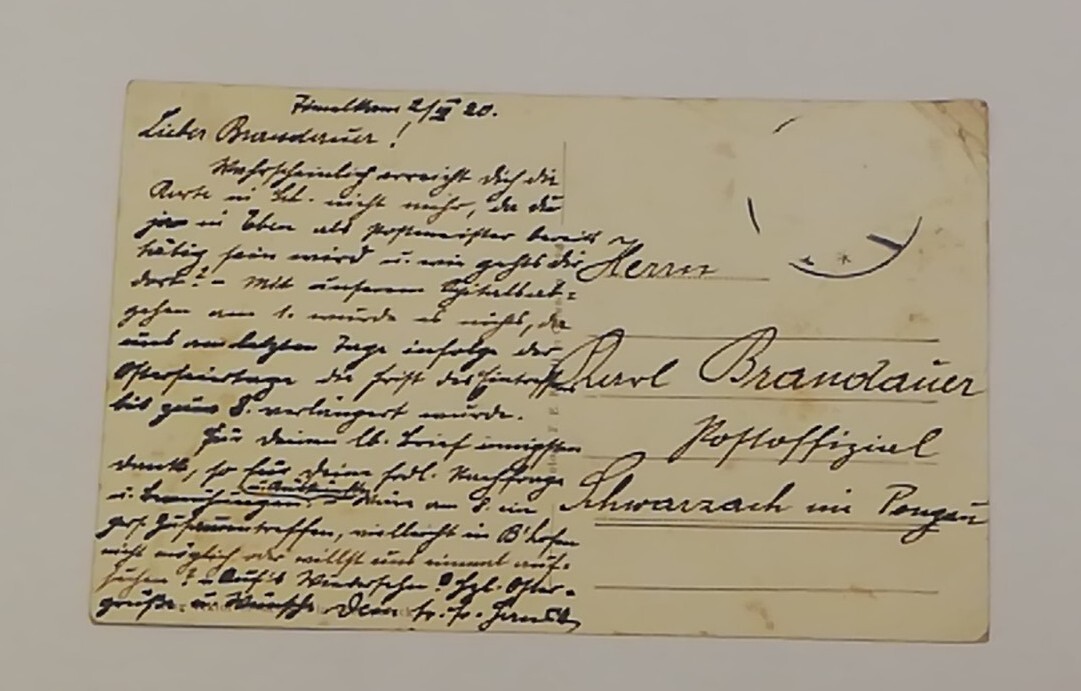 2/IV 20.
Lieber Brandauer!
Wahrscheinlich erreicht dich die
Karte in St. nicht mehr, da du
ja in Eben als Postmeister bereits
tätig sein wird u. wie gehts dir
dort? - Mit unserem
gehen am 1. wurde es nichts, da
uns am letzten Tage infolge der
Osterfeiertage die Frist des
bis zum 8. verlängert wurde.
Für deinen lb. Brief innigsten
Dank, so für deine frdl. Nachfrage
u. Bemühungen. Wäre am 8. ein
Zusammentreffen, vielleicht in B'hofen
nicht möglich oder willst uns einmal auf=
suchen? - Auf's Wiedersehen! Hzl. Oster=
grüße u. Wünsche Dein
Herrn
Karl Brandauer
Postoffizial
Schwarzach im Pongau